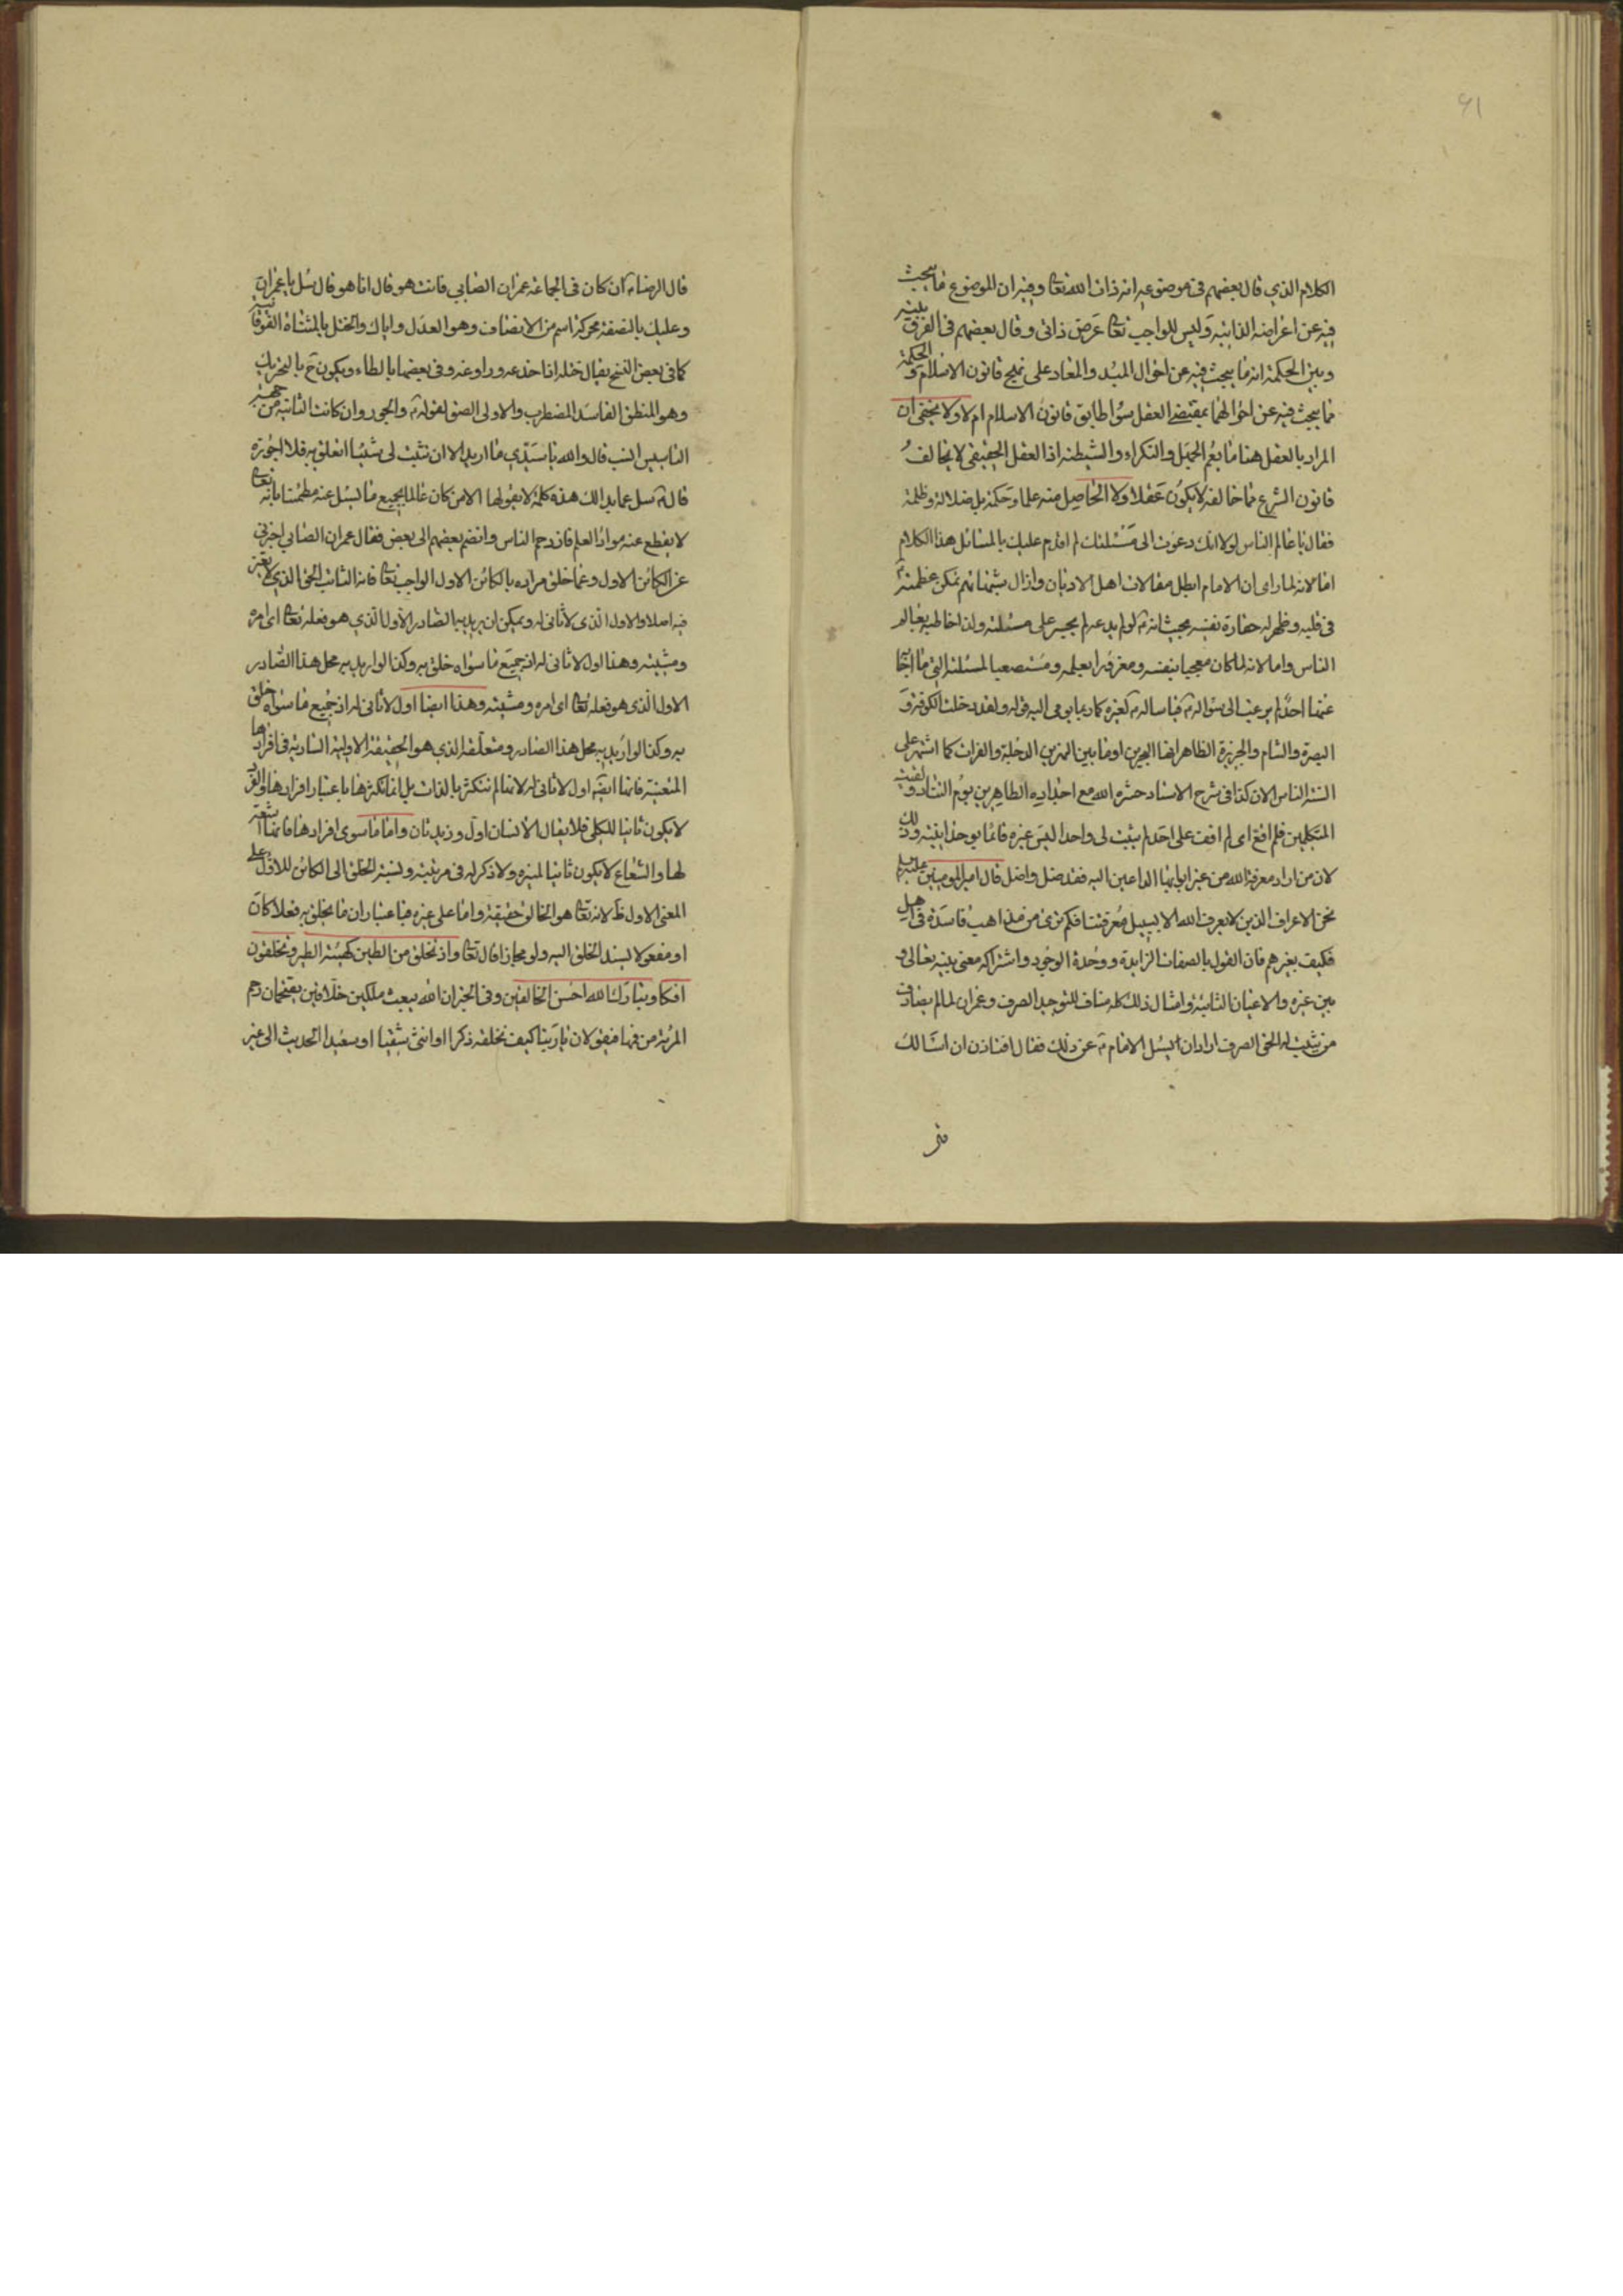 ٤١
الكلام الذي قال بعضهم في موضوعه انه ذات الله تعا وفيه ان الموضوع ما يبحث
فيه عن اعراضه الذاتيه وليس للواجب تعا عرض ذاتي وقال بعضهم في الفرق بينه
وبين الحكمة انه ما يبحث فيه عن احوال المبدء والمعاد على نهج قانون الاسلام والحكمة
ما يبحث فيه عن احوالهما بمقتضى العقل سواء طابق قانون الاسلام ام لا ولا يخفى ان
المراد بالعقل هنا ما يعم الجهل والنكراء والشيطنة اذا العقل الحقيقي لا يخالف
قانون الشرع فما خالفه لا يكون عقلا ولا الحاصل منه علما وحكمة بل ضلالة وظلمة
فقال يا عالم الناس لولا انك دعوت الى مسئلتك لم اقدم عليك بالمسائل هذا الكلام
اما لانه لما راى ان الامام ابطل مقالات اهل الاديان وازال شبهاتهم تمكن عظمته
في قلبه وظهر له حقارة نفسه بحيث انه لو لم يدعه لم يجسر على مسئلته ولذا خاطبه بعالم
الناس واما لانه لما كان معجبا بنفسه ومغرورا بعلمه ومستصعبا لمسئلته التي ما اجابه
عنها احد لم يرغب الى سؤاله فيا ساله كغيره كما ربما يومي اليه قوله ولقد دخلت الكوفة و
البصرة والشام والجزيرة الظاهر انها البحرين او ما بين النهرين الدجلة والفرات كما اشتهر على
السنة الناس الان كذا في شرح الاستاد حشره الله مع اجداده الطاهرين يوم التناد ولقيت
المتكلمين فلم اقع اي لم اقف على احد لم يثبت لي واحدا ليس غيره قائما بوحدانيته وذلك
لان من اراد معرفة الله من غير ابوابها الداعين اليه فقد ضل واضل قال امير المومنين عليه السلم
نحن الاعراف الذين لا يعرف الله الا بسبيل معرفتنا فكم ترى من مذاهب فاسدة في اهل
فكيف بغيرهم فان القول بالصفات الزايدة ووحدة الوجود واشتراكه معنى بينه تعالى و
بين غيره والاعيان الثابتة وامثال ذلك كله مناف للتوحيد الصرف وعمران لما لم يصادف
من يثبت له الحق الصرف اراد ان يسئل الامام عن ذلك فقال افتاذن ان اسالك
قال الرضا ان كان في الجماعة عمران الصابي فانت هو قال انا هو قال سل يا عمران
وعليك بالنصفة محركة اسم من الانصاف وهو العدل واياك والختل بالمثناة الفوقانية
كما في بعض النسخ يقال ختله اذا خدعه وراوغه وفي بعضها بالطاء ويكون ح بالتحريك
وهو المنطق الفاسد المضطرب والاولى الصق لقوله والجور وان كانت الثانية من جهة
التاسيس انسب قال والله يا سيدي ما اريد الا ان تثبت لي شيئا اتعلق به فلا اجوزه
قال سل عما بدا لك هذه كلمة لا يقولها الا من كان عالما بجميع ما يسئل عنه مطمئنا بانه تعا
لا يقطع عنه مواد العلم فازدحم الناس وانضم بعضهم الى بعض فقال عمران الصابي اخبرني
عن الكائن الاول وعما خلق مراده بالكائن الاول الواجب تعا فانه الثابت الحق الذي لا تغير
فيه اصلا والاول الذي لا ثاني له ويمكن ان يريد به الصادر الاول الذي هو فعله تعا اى امره
ومشيته وهذا اول لا ثاني له اذ جميع ما سواه خلق به وكذا لو اريد به محل هذا الصادر
الاول الذي هو فعله تعا اى امره ومشيته وهذا ايضا اول لا ثاني له اذ جميع ما سواه خلق
به وكذا لو اريد به محل هذا الصادر ومتعلقه الذي هو الحقيقة الاولية السارية في افرادها
المتعينة فانها ايضا اول لا ثاني له لانها لم تتكثر بالذات بل انما تكثرها باعتبار افرادها والفرد
لا يكون ثانيا للكلي فلا يقال الانسان اول وزيد ثان واما ما سوى افرادها فانها اشعة
لها والشعاع لا يكون ثانيا للمنير ولا ذكر له في مرتبته ونسبة الخلق الى الكائن الاول على
المعنى الاول ظ لانه تعا هو الخالق حقيقة واما على غيره فباعتبار ان ما يخلق به فعلا كان
او مفعولا يسند الخلق اليه ولو مجازا قال تعا واذ تخلق من الطين كهيئة الطير وتخلقون
افكا وتبارك الله احسن الخالقين وفي الخبر ان الله يبعث ملكين خلاقين يقتحمان رحم
المرئة من فيها فيقولان يا ربنا كيف نخلقه ذكرا او انثى شقيا او سعيدا الحديث الى غير